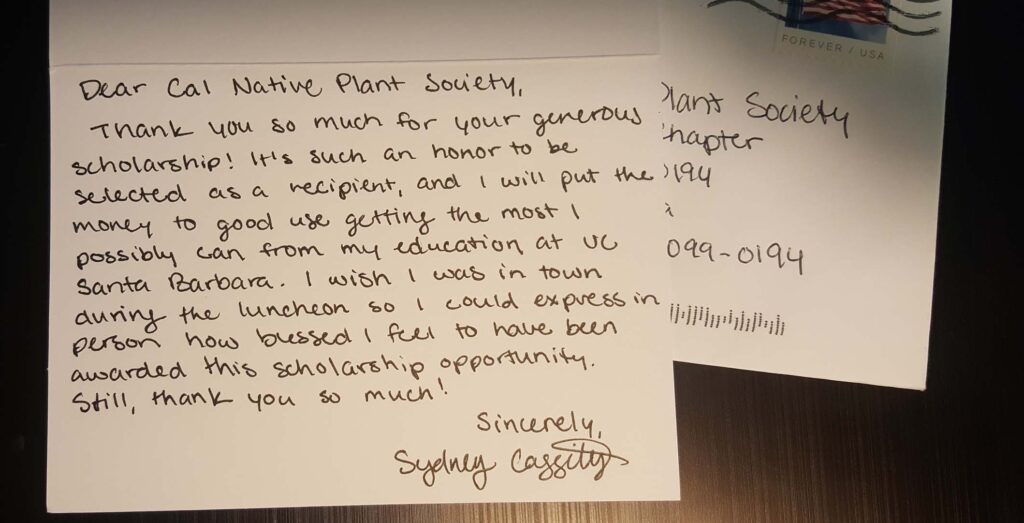 Dear Cal Native Plant Society,
Thank you so much for your generous
scholarship! It's such an honor to be
selected as a recipient, and I will put the
money to good use getting the most I
possibly can from my education at UC
Santa Barbara. I wish I was in town
during the luncheon so I could express in
person how blessed I feel to have been
awarded this scholarship opportunity.
Still, thank you so much!
Sincerely,
Sydney Cassity
FOREVER / USA
Plant Society
Chapter
0194
099-0194